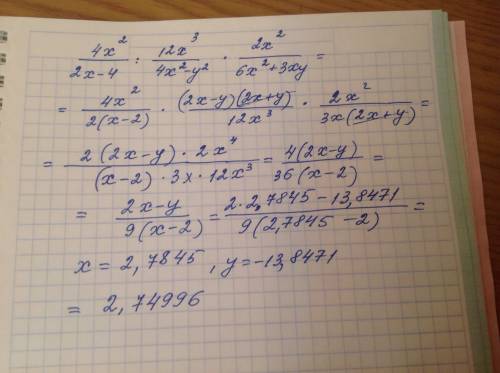 4x² / (2x-4) : 12x³ / (4x²-y²) · 2x² / (6x²+3xy) =
= 4x² / (2(x-2)) · (2x-y)(2x+y) / 12x³ · 2x² / (3x(2x+y)) =
= 2(2x-y)·2x⁴ / ((x-2)·3x·12x³) = 4(2x-y) / (36(x-2)) =
= (2x-y) / (9(x-2)) = (2·2,7845-13,8471) / (9(2,7845-2)) =
x = 2,7845 , y=-13,8471
= 2,74996